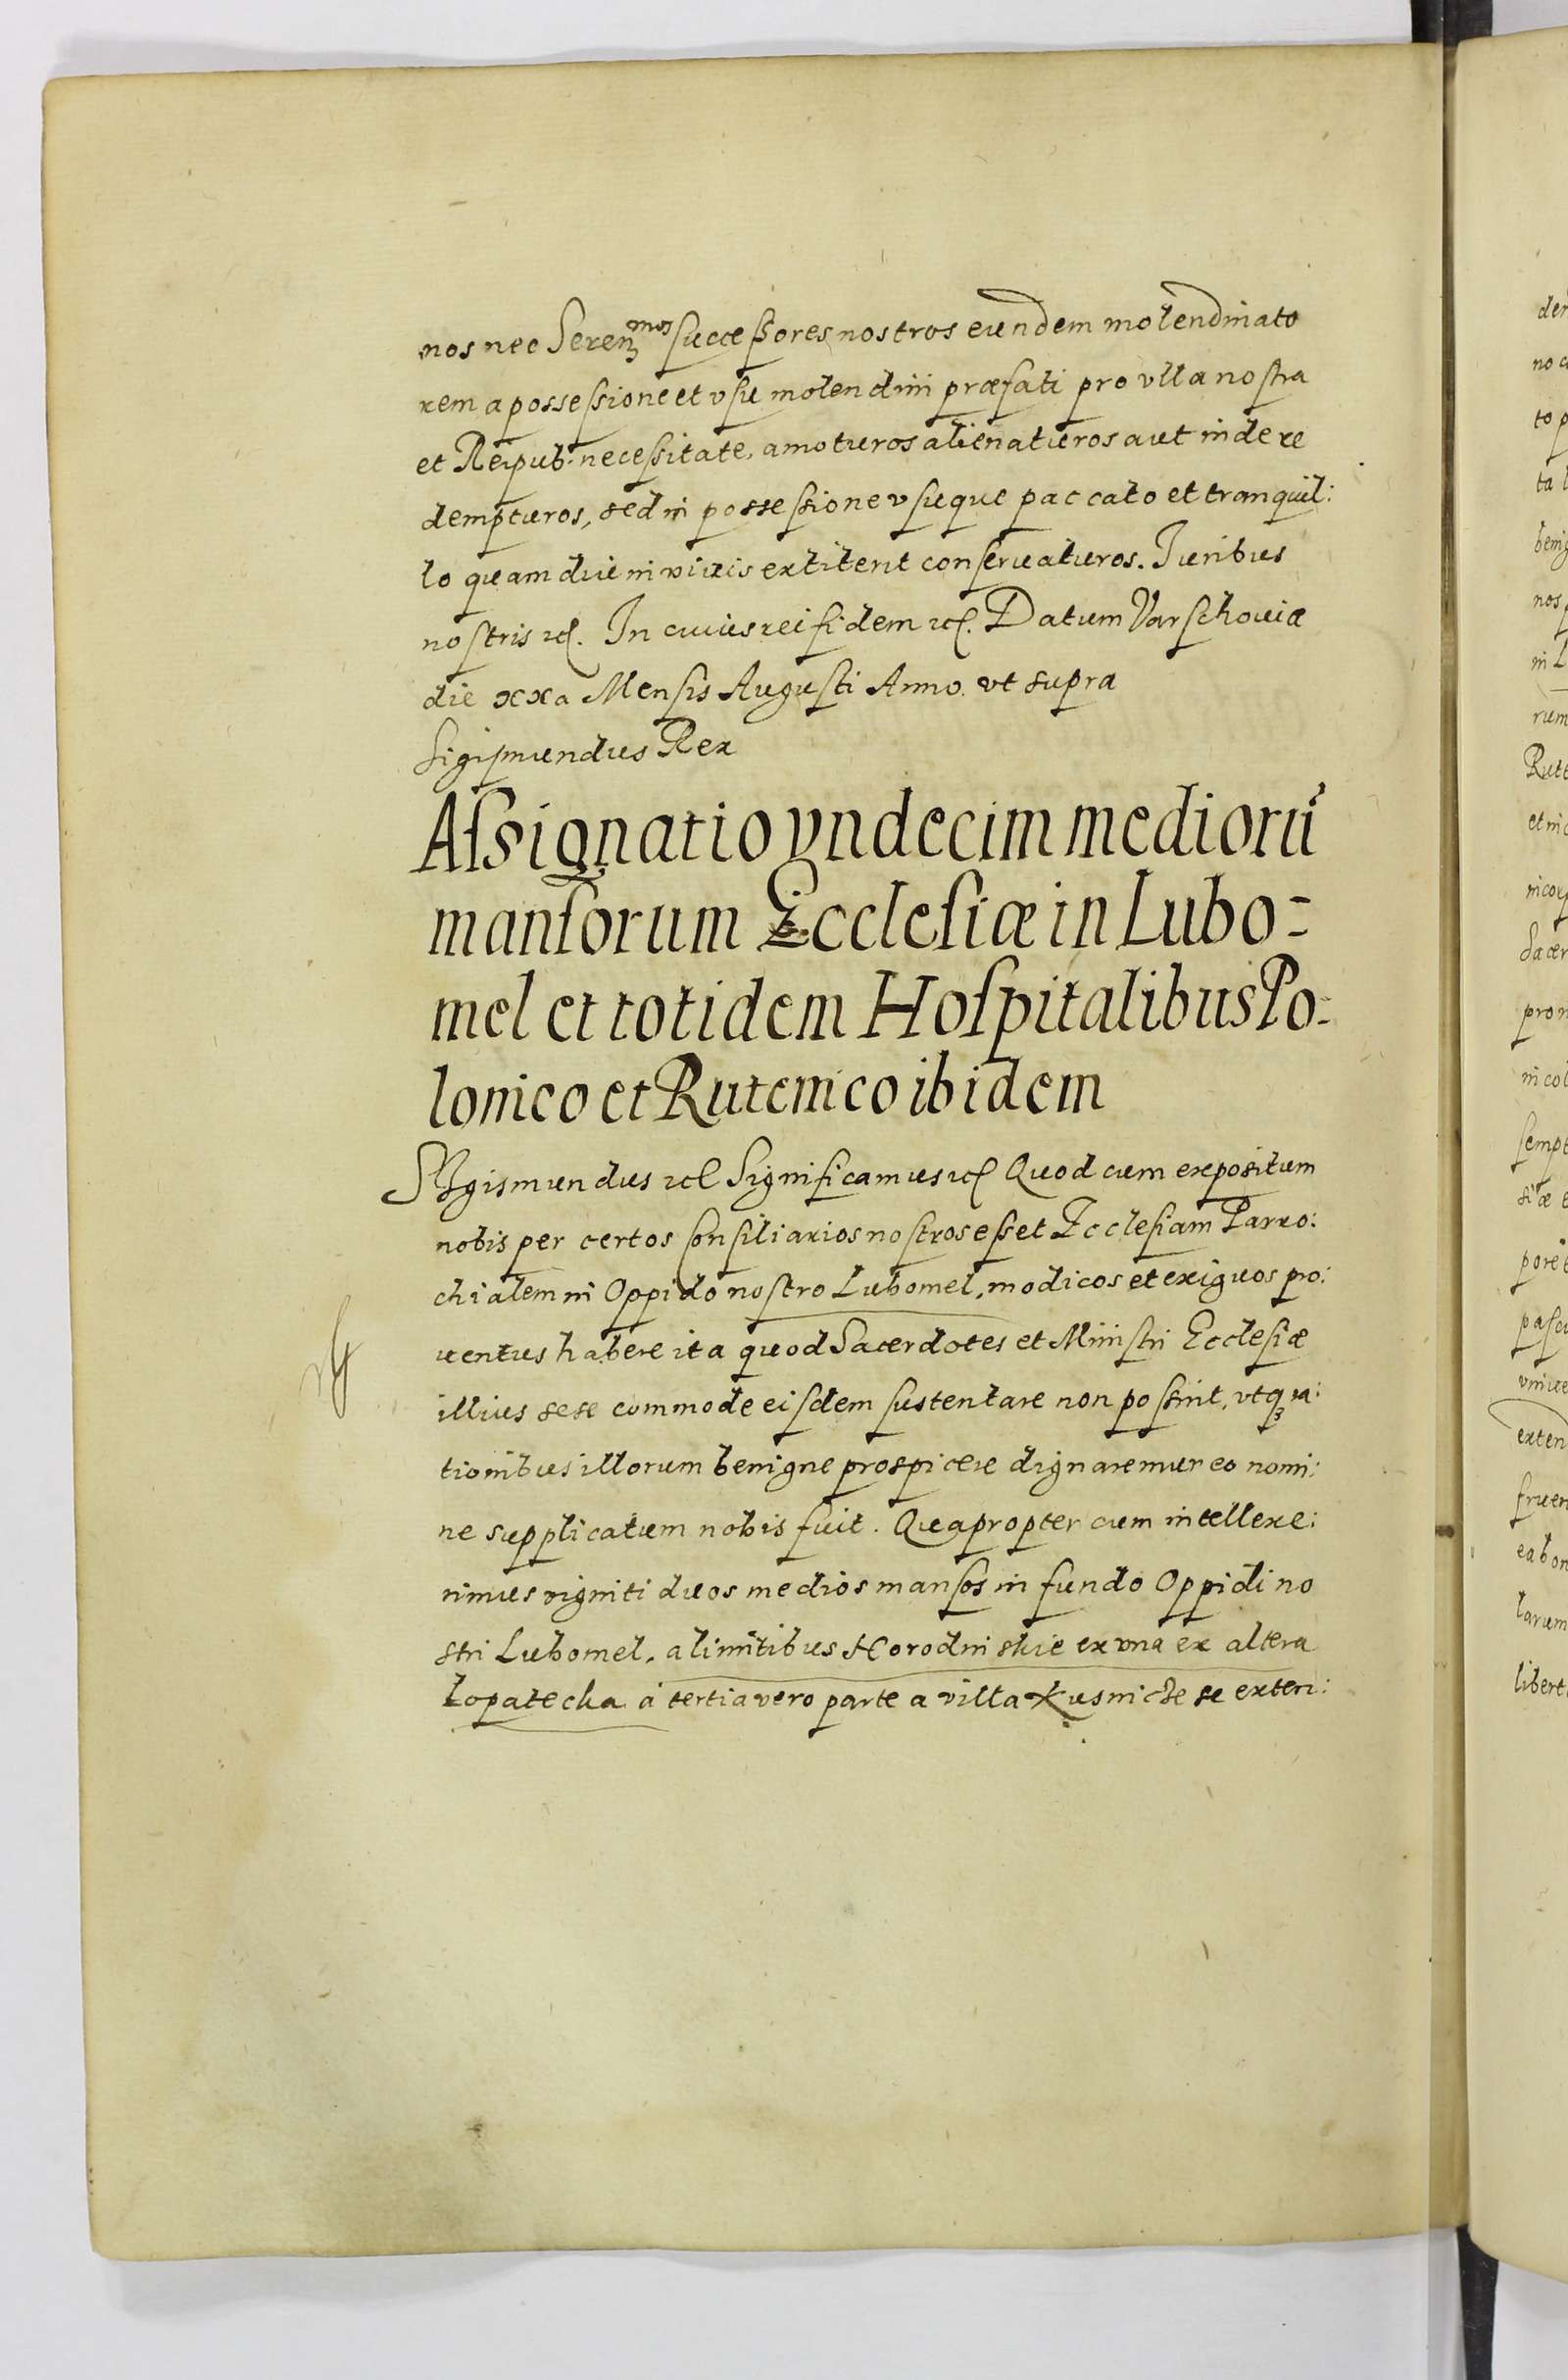 nos nec Seren^mos successores nostros eundem molendinato
rem a possessione et vsu molendini præfati pro vlla nostra
et Reipub: necessitate, amoturos alienaturos aut inde re
dempturos, sed in possessione vsuque paccato et tranquil:
lo quamdiu in viuis extiterit conseruaturos. Iuribus
nostris etc. In cuius rei fidem etc. Datum Varschouiæ
die xxa Mensis Augusti Anno vt supra
Sigismundus Rex
Assignatio vndecim mediorũ
mansorum Ecclesiæ in Lubo-
mel et totidem Hospitalibus Po-
lonico et Rutenico ibidem
Sigismundus etc Significamus etc Quod cum expositum
nobis per certos Consiliarios nostros esset Ecclesiam Parro:
chialem in Oppido nostro Lubomel, modicos et exiguos pro:
uentus habere ita quod Sacerdotes et Ministri Ecclesiæ
illius sese commode eisdem sustentare non possint, vtq3 ra:
tionibus illorum benigne prospicere dignaremur eo nomi:
ne supplicatum nobis fuit. Quapropter cum intellexe:
rimus viginti duos medios mansos in fundo Oppidi no
stri Lubomel, a limitibus Horodniskie ex vna ex altera
Lopatecka á tertia vero parte a villa Kusnicze se exten: